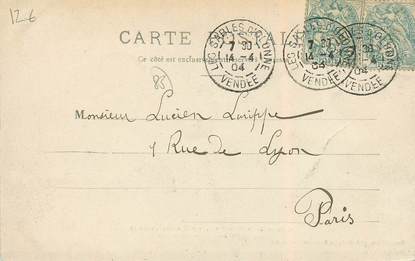 12-6
CARTE
Ce côté est exclusivement
LES SABLES D'OLONNE
7 30
14 -4
04
VENDÉE
LES SABLES D'OLONNE
7 30
14 -4
04
VENDÉE
85
Monsieur Lucien
1 Rue de Lyon
Paris